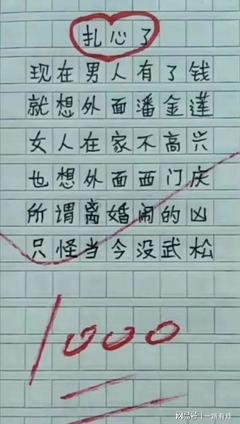 扎心了
现在男人有了钱
就想外面潘金莲
女人在家不高兴
也想外面西门庆
所谓离婚闹的凶
只怪当今没武松
1000